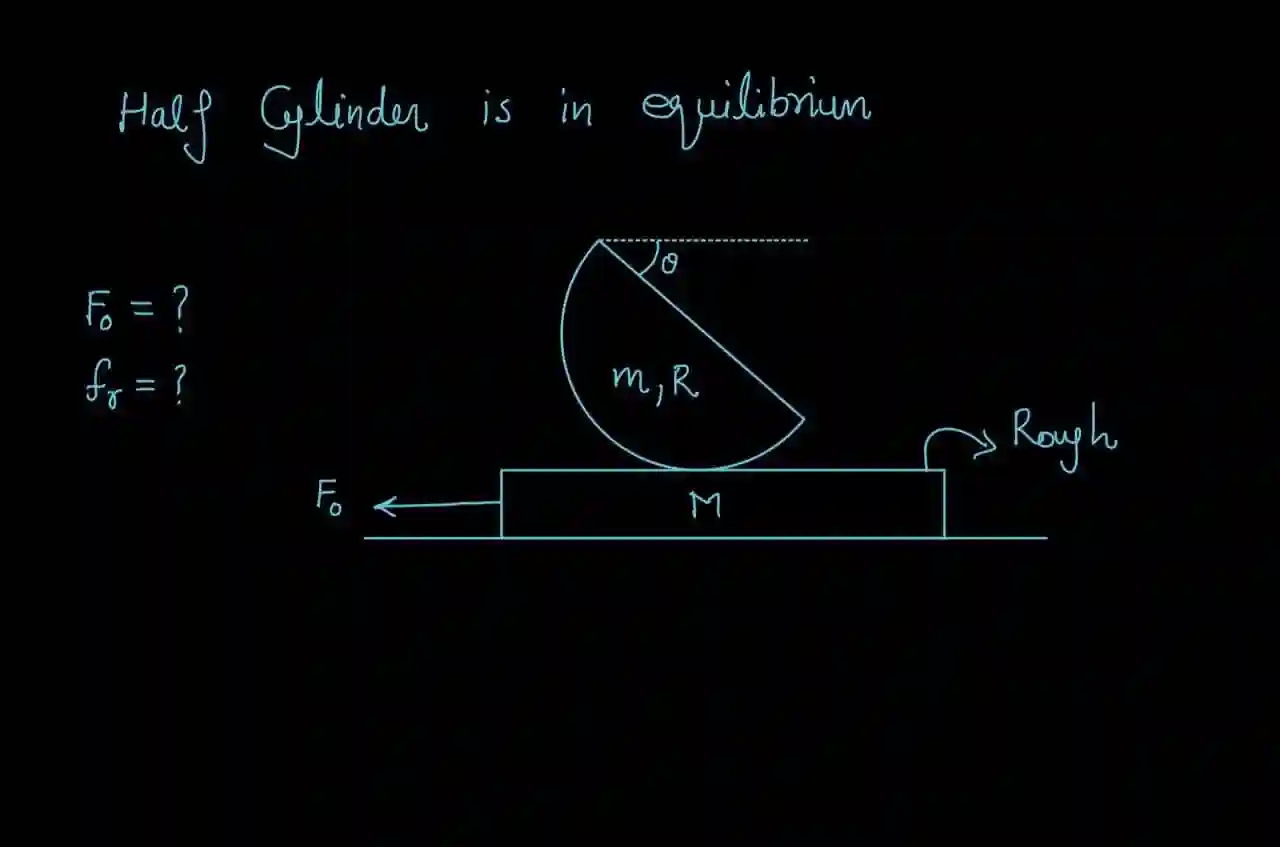 Half Cylinder is in equilibrium
θ
F₀ = ?
m, R
fᵣ = ?
Rough
F₀
M